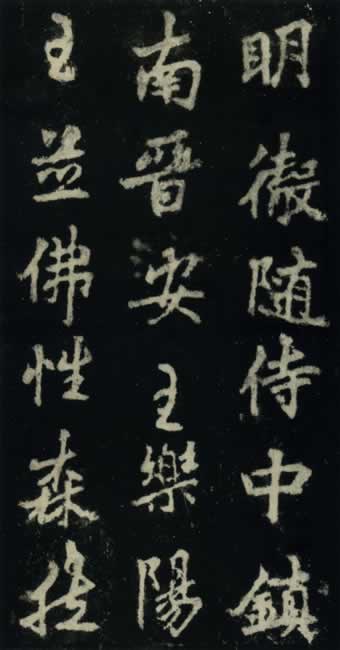 明徹随侍中鎮
南晉安王樂陽
王並佛性森挺